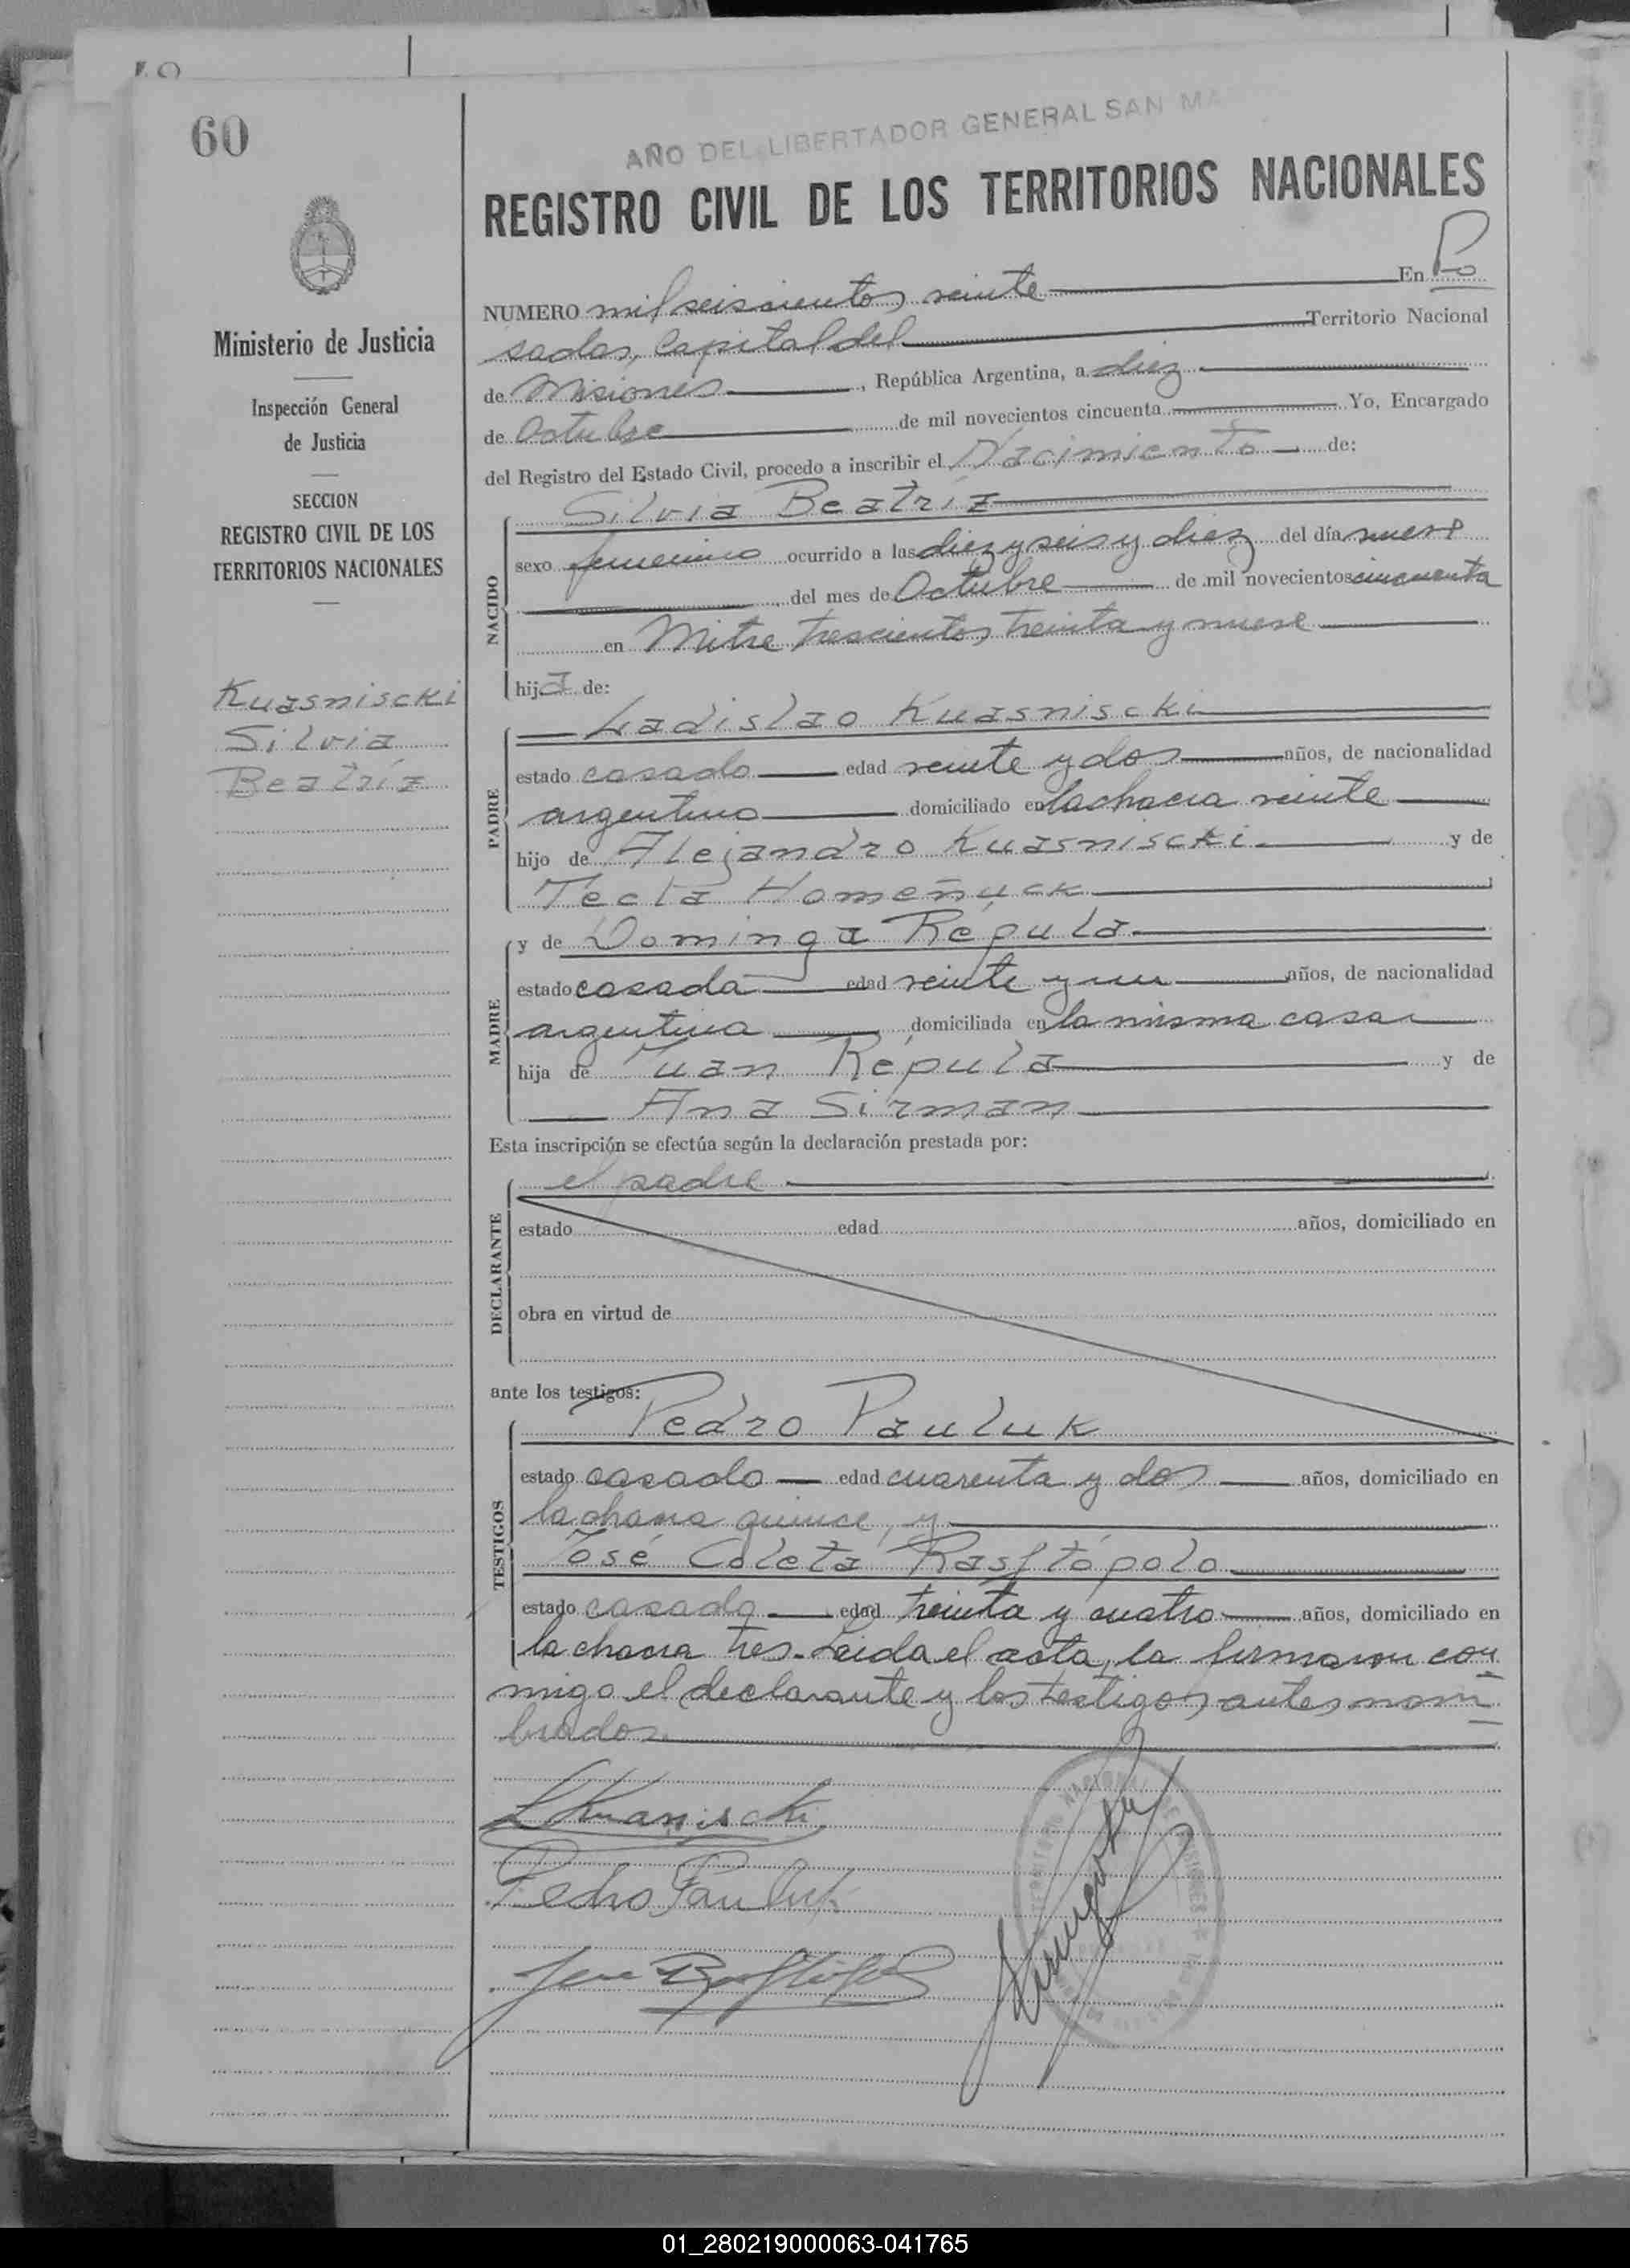 60
AÑO DEL LIBERTADOR GENERAL SAN MA
REGISTRO CIVIL DE LOS TERRITORIOS NACIONALES
Ministerio de Justicia
Inspección General
de Justicia
SECCION
REGISTRO CIVIL DE LOS
TERRITORIOS NACIONALES
Kuasniscki
Silvia
Beatríz
NUMERO mil seiscientos veinte En Po
sadas, Capital del Territorio Nacional
de Misiones, República Argentina, a diez
de Octubre de mil novecientos cincuenta Yo, Encargado
del Registro del Estado Civil, procedo a inscribir el Nacimiento de:
NACIDO
Silvia Beatríz
sexo femenino ocurrido a las diez y seis y diez del día nueve
del mes de Octubre de mil novecientos cincuenta
en Mitre trescientos treinta y nueve
hija de:
PADRE
Ladislao Kuasniscki
estado casado edad veinte y dos años, de nacionalidad
argentino domiciliado en la chacra veinte
hijo de Alejandro Kuasniscki y de
Tecla Homeñuck
MADRE
y de Dominga Répula
estado casada edad veinte y un años, de nacionalidad
argentina domiciliada en la misma casa
hija de Juan Répula y de
Ana Sirman
Esta inscripción se efectúa según la declaración prestada por:
DECLARANTE
el padre
estado edad años, domiciliado en
obra en virtud de
ante los testigos:
TESTIGOS
Pedro Pauluk
estado casado edad cuarenta y dos años, domiciliado en
la chacra quince, y
José Coleta Rasftópolo
estado casado edad treinta y cuatro años, domiciliado en
la chacra tres. Leida el acta, la firmaron con
migo el declarante y los testigos antes nom
brados.
L Kuasniscki
Pedro Pauluk
01_280219000063-041765